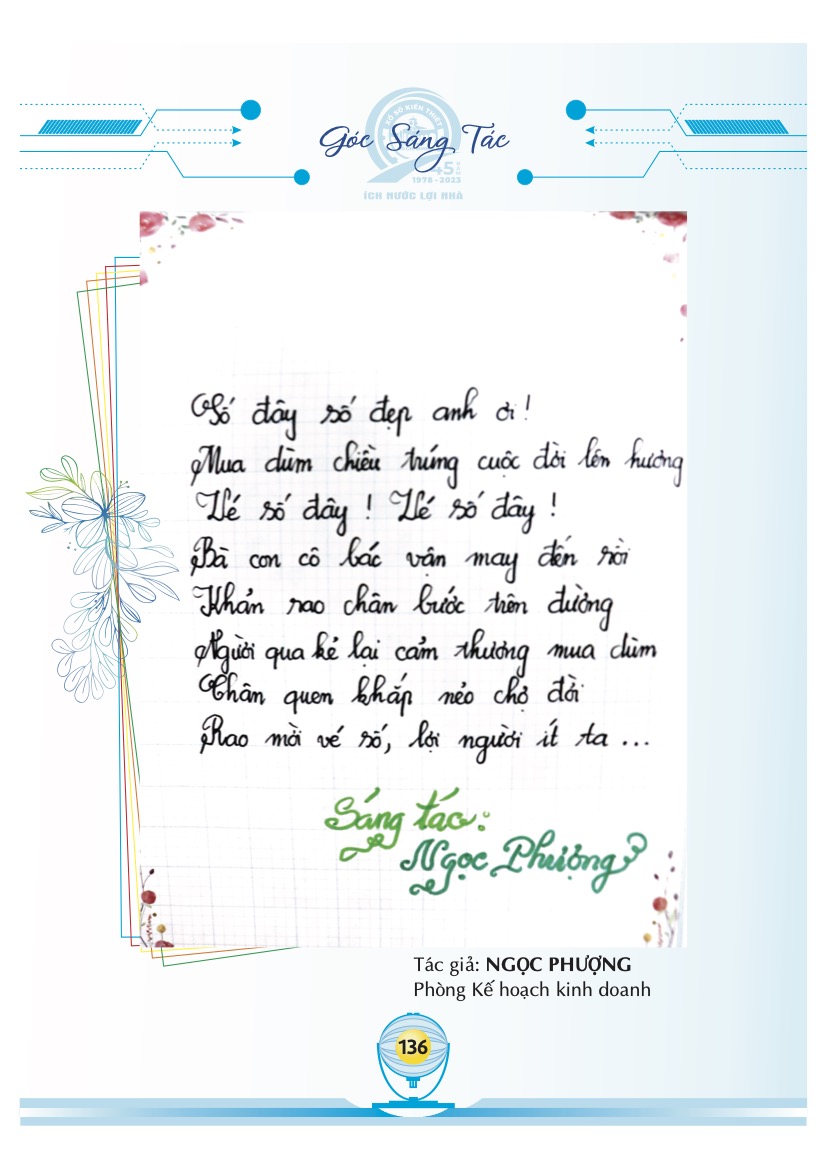 XỔ SỐ KIẾN THIẾT
Góc Sáng Tác
45
1978 - 2023
ÍCH NƯỚC LỢI NHÀ
Số đây số đẹp anh ơi !
Mua dùm chiều trúng cuộc đời lên hương
Vé số đây ! Vé số đây !
Bà con cô bác vận may đến rồi
Khản rao chân bước trên đường
Người qua kẻ lại cảm thương mua dùm
Chân quen khắp nẻo chợ đời
Rao mời vé số, lợi người ít ta ...
Sáng tác:
Ngọc Phượng
Tác giả: NGỌC PHƯỢNG
Phòng Kế hoạch kinh doanh
136